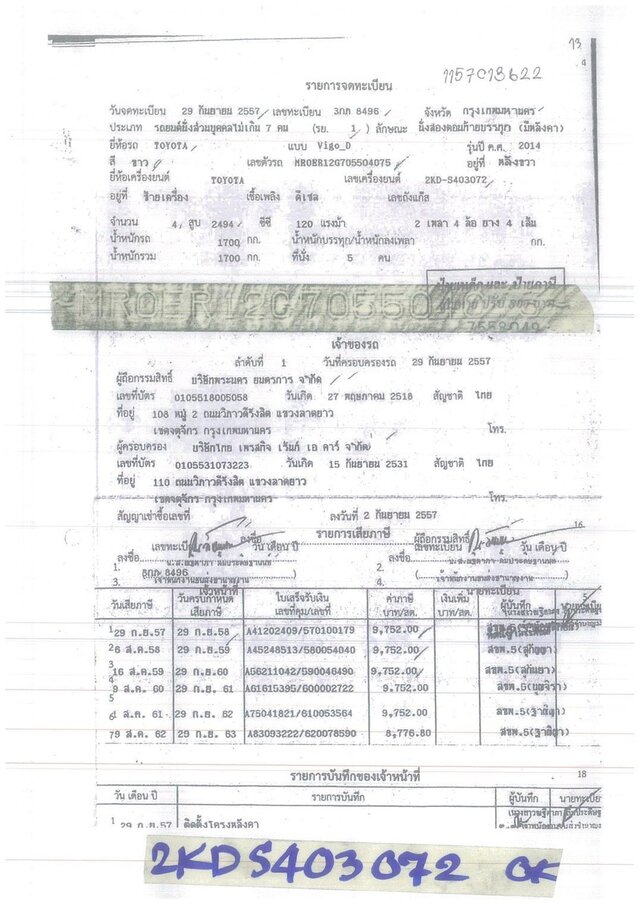 13
รายการจดทะเบียน
1157013622
วันจดทะเบียน 29 กันยายน 2557 เลขทะเบียน 3กภ 8496 จังหวัด กรุงเทพมหานคร
ประเภท รถยนต์นั่งส่วนบุคคลไม่เกิน 7 คน (รย. 1) ลักษณะ นั่งสองตอนท้ายบรรทุก (มีหลังคา)
ยี่ห้อรถ TOYOTA แบบ Vigo_D รุ่นปี ค.ศ. 2014
สี ขาว เลขตัวรถ MR0ER12G705504075 อยู่ที่ หลังขวา
ยี่ห้อเครื่องยนต์ TOYOTA เลขเครื่องยนต์ 2KD-S403072
อยู่ที่ ซ้ายเครื่อง เชื้อเพลิง ดีเซล เลขถังแก๊ส
จำนวน 4 สูบ 2494 ซีซี 120 แรงม้า 2 เพลา 4 ล้อ ยาง 4 เส้น
น้ำหนักรถ 1700 กก. น้ำหนักบรรทุก/น้ำหนักลงเพลา กก.
น้ำหนักรวม 1700 กก. ที่นั่ง 5 คน
MR0ER12G705504075
เจ้าของรถ
ลำดับที่ 1 วันที่ครอบครองรถ 29 กันยายน 2557
ผู้ถือกรรมสิทธิ์ บริษัทพระนคร ยนตรการ จำกัด
เลขที่บัตร 0105518005058 วันเกิด 27 พฤษภาคม 2518 สัญชาติ ไทย
ที่อยู่ 108 หมู่ 2 ถนนวิภาวดีรังสิต แขวงลาดยาว
เขตจตุจักร กรุงเทพมหานคร โทร.
ผู้ครอบครอง บริษัทไทย เพรสทิจ เร้นท์ เอ คาร์ จำกัด
เลขที่บัตร 0105531073223 วันเกิด 15 กันยายน 2531 สัญชาติ ไทย
ที่อยู่ 110 ถนนวิภาวดีรังสิต แขวงลาดยาว
เขตจตุจักร กรุงเทพมหานคร โทร.
สัญญาเช่าซื้อเลขที่ ลงวันที่ 2 กันยายน 2557
16
รายการเสียภาษี
เลขทะเบียน ลงชื่อ วัน เดือน ปี ผู้ถือกรรมสิทธิ์
เลขทะเบียน วัน เดือน ปี
1. ลงชื่อ 2. ลงชื่อ
3. 3กภ 8496 4.
เจ้าหน้าที่ นายทะเบียน
วันเสียภาษี วันครบกำหนดเสียภาษี ใบเสร็จรับเงิน เล่มที่/เลขที่ ค่าภาษี บาท/สต. เงินเพิ่ม บาท/สต. ผู้บันทึก นายทะเบียน
1 29 ก.ย.57 29 ก.ย.58 A41202409/570100179 9,752.00
2 6 ส.ค.58 29 ก.ย.59 A45248513/580054040 9,752.00 สขพ.5
3 16 ส.ค.59 29 ก.ย.60 A56211042/590046490 9,752.00 สขพ.5
4 9 ส.ค. 60 29 ก.ย. 61 A61615395/600002722 9,752.00 สขพ.5
5
6 1 ส.ค. 61 29 ก.ย. 62 A75041821/610053564 9,752.00 สขพ.5
7 9 ส.ค. 62 29 ก.ย. 63 A83093222/620078590 8,776.80 สขพ.5
รายการบันทึกของเจ้าหน้าที่
18
วัน เดือน ปี รายการบันทึก ผู้บันทึก นายทะเบียน
1 29 ก.ย.57 ติดตั้งโครงหลังคา
2KDS403072 OK